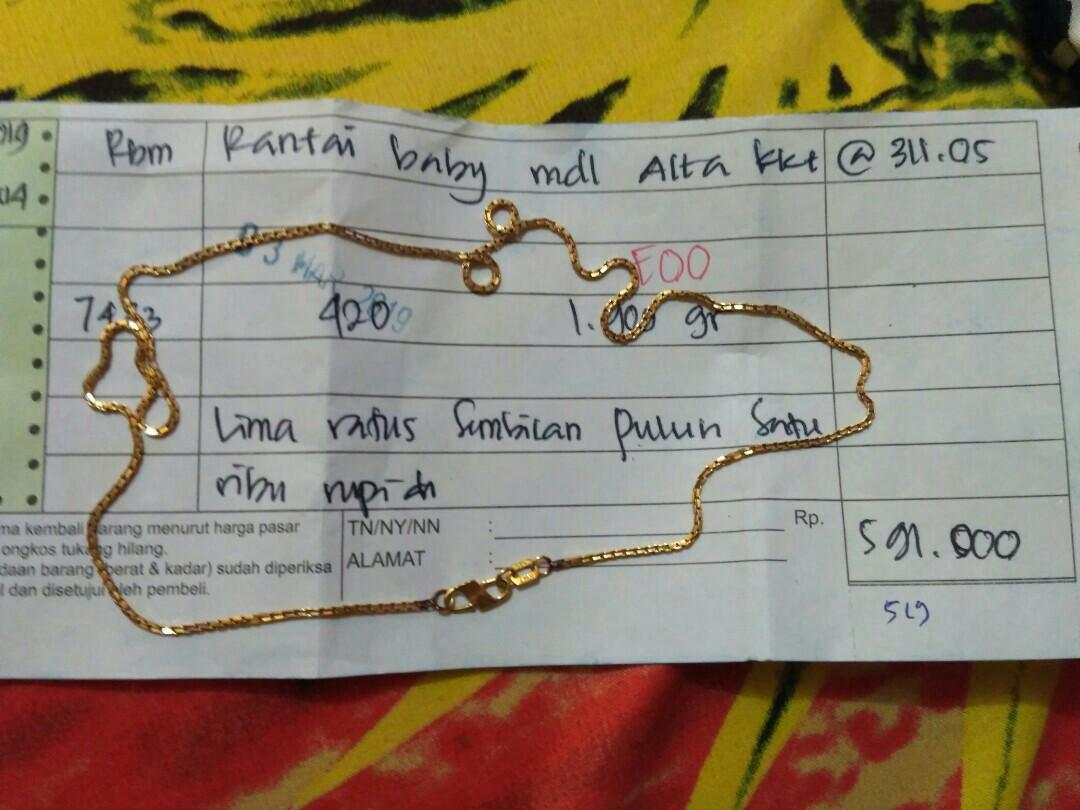 019
Rbm Rantai baby mdl Alta kkt @ 311.05
014
03 MAR 2019
E00
420 gr
Lima ratus Sembilan puluh Satu
ribu rupiah
ma kembali barang menurut harga pasar
ongkos tukang hilang.
daan barang (berat & kadar) sudah diperiksa
l dan disetujui oleh pembeli.
TN/NY/NN :
ALAMAT :
Rp. 591.000
519